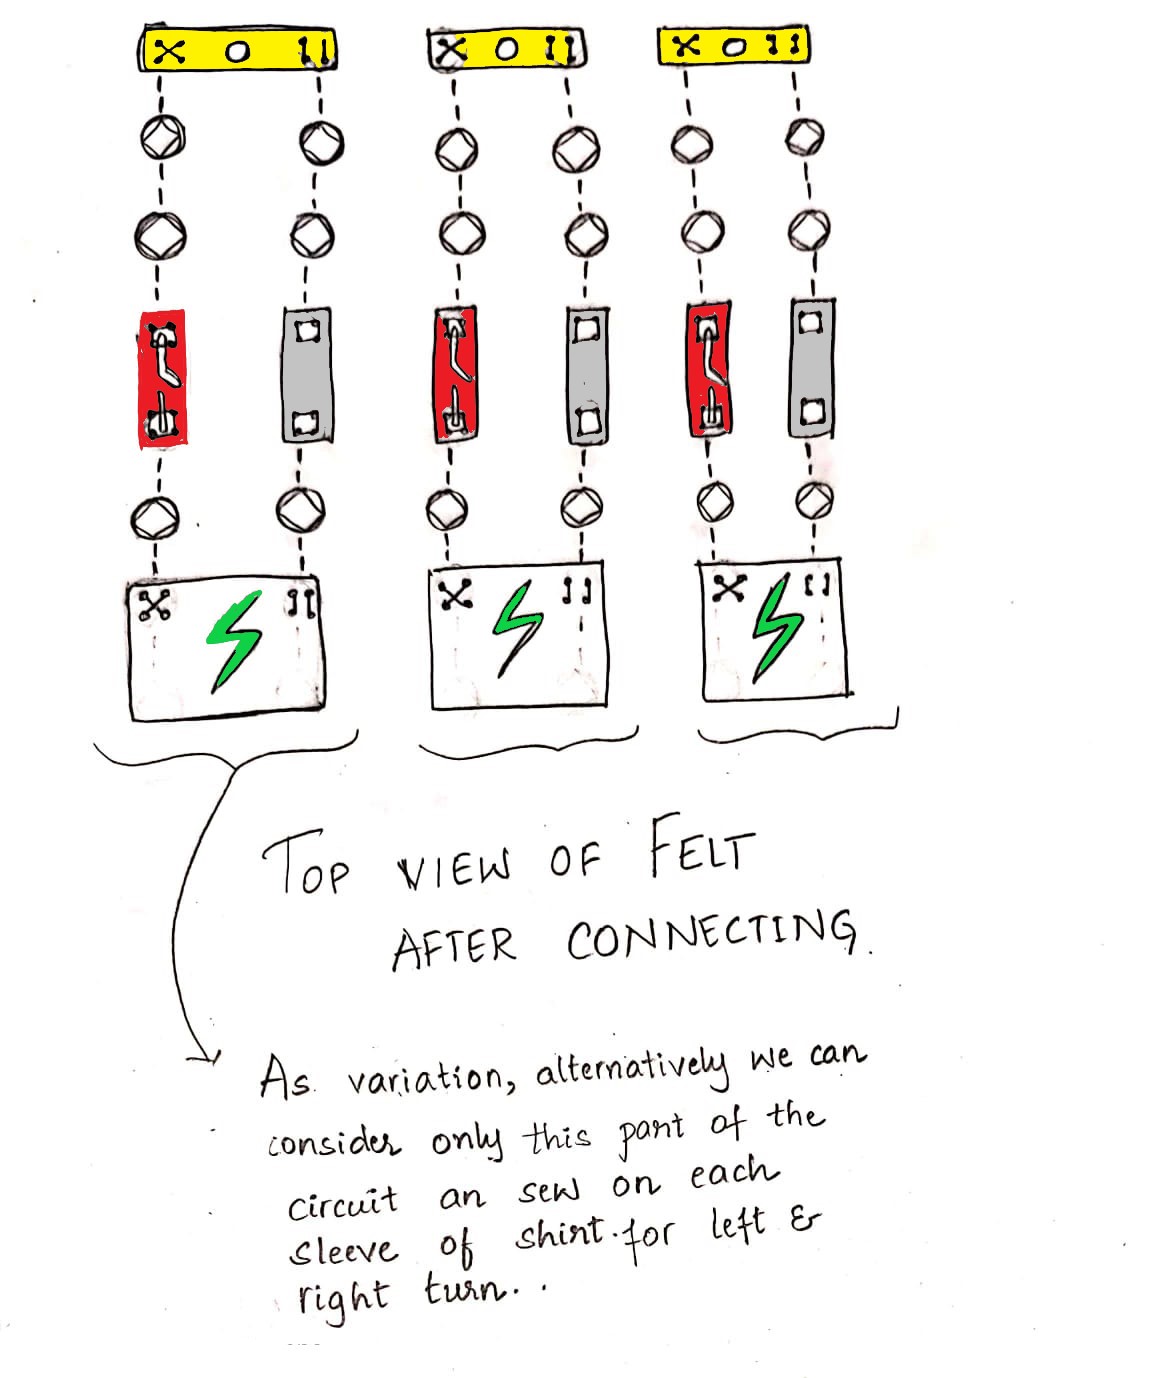 TOP VIEW OF FELT
AFTER CONNECTING.
As variation, alternatively we can
consider only this part of the
circuit an sew on each
sleeve of shirt. for left &
right turn..